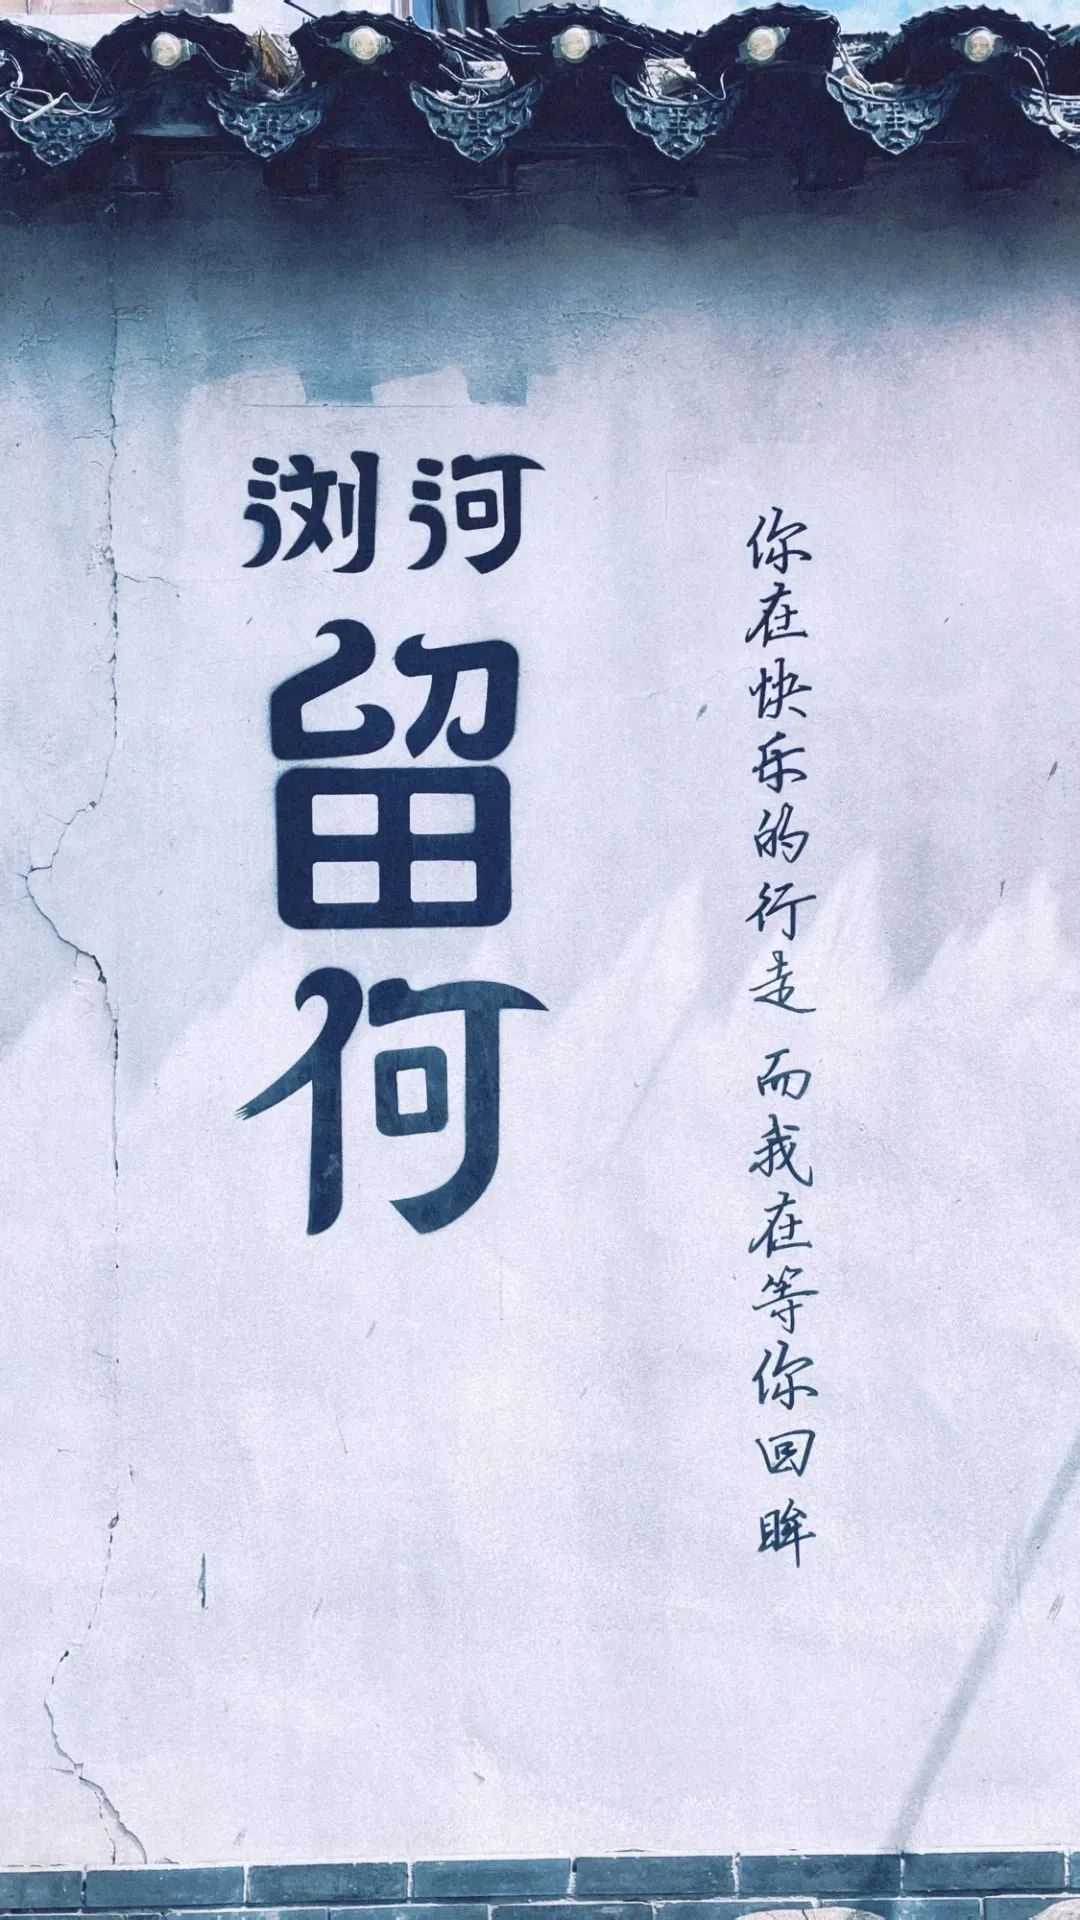 浏河
留何
你在快乐的行走 而我在等你回眸